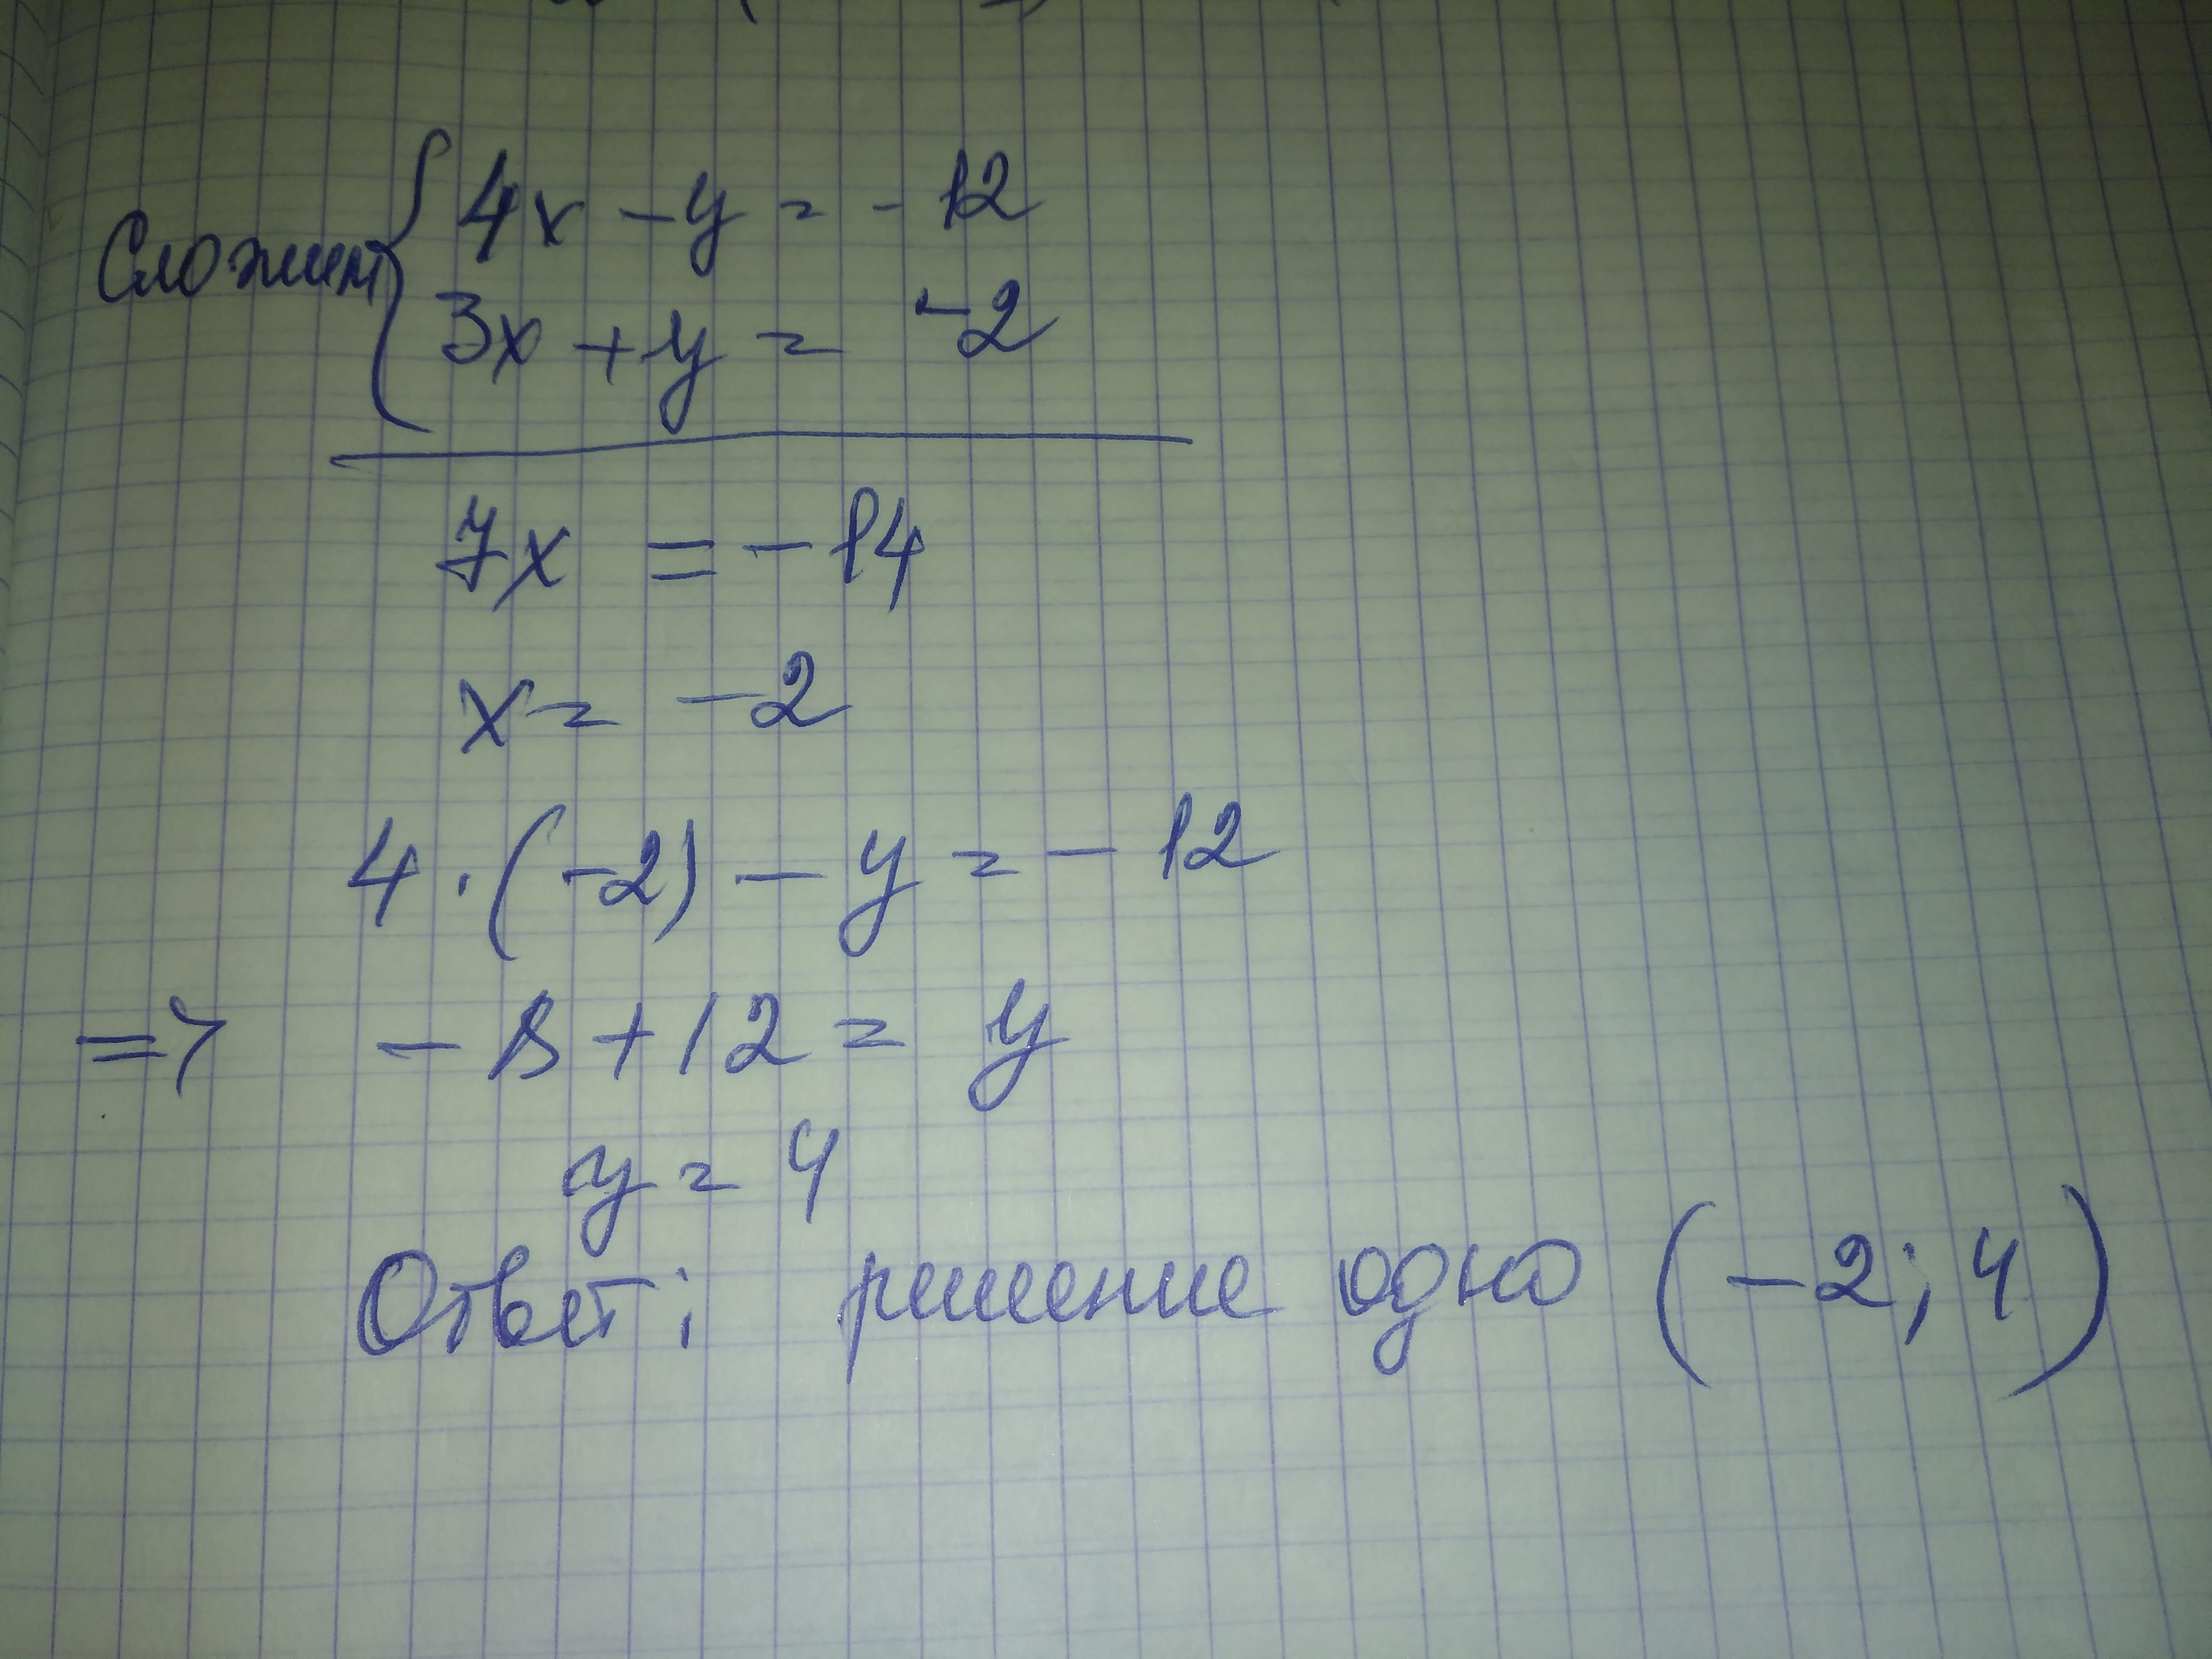 Сложим { 4x - y = - 12
3x + y = -2
7x = - 14
x = -2
4 · (-2) - y = - 12
=> - 8 + 12 = y
y = 4
Ответ: решение одно (-2; 4)